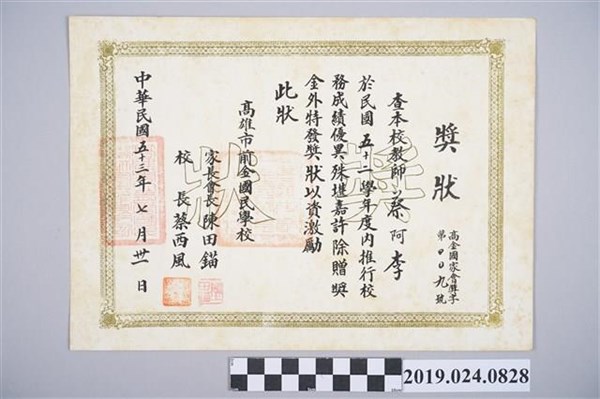 獎狀
高金國家會獎字
第00九號
查本校教師蔡阿李
於民國五十二學年度內推行校
務成績優異殊堪嘉許除贈獎
金外特發獎狀以資激勵
此狀
高雄市前金國民學校
家長會長陳田錨
校長蔡西風
中華民國五十三年七月卅一日
獎狀
2019.024.0828